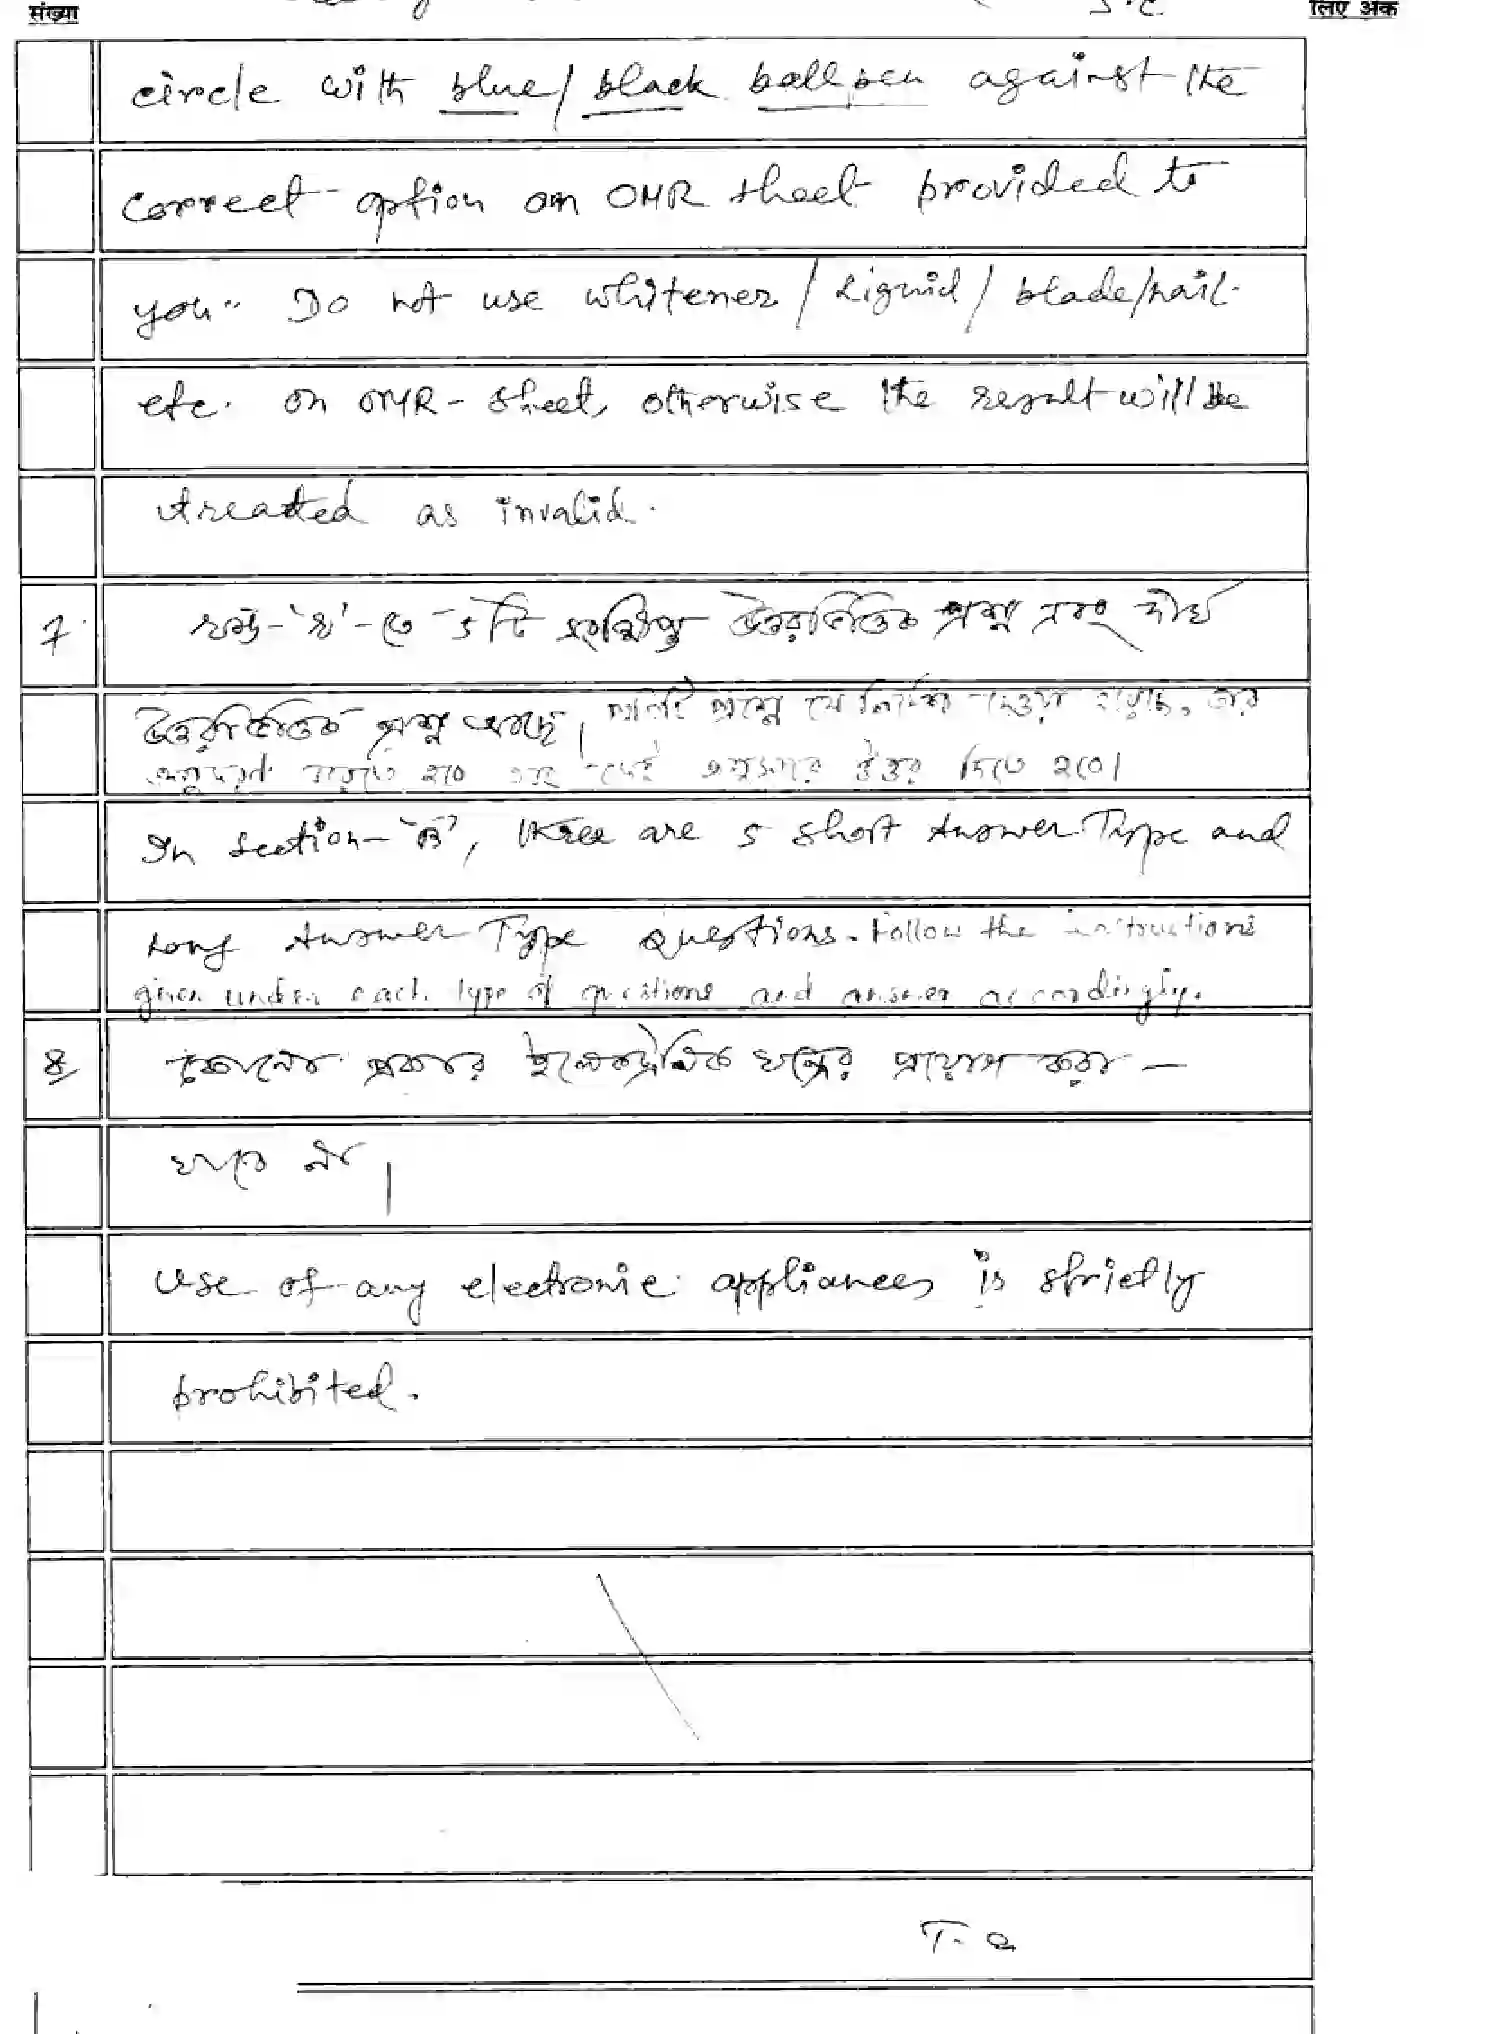 संख्या लिए अंक
circle with blue/black ball pen against the
correct option on OMR sheet provided to
you. Do not use whitener/Liquid/blade/nail
etc. on OMR-sheet, otherwise the result will be
treated as invalid.
7. খণ্ড-'খ'-তে ৫টি সংক্ষিপ্ত উত্তরভিত্তিক প্রশ্ন এবং দীর্ঘ
উত্তরভিত্তিক প্রশ্ন আছে। প্রতিটি প্রশ্নে যে নির্দেশ দেওয়া হয়েছে, তার
অনুসরণ করতে হবে এবং সেই অনুসারে উত্তর দিতে হবে।
In section-'B', there are 5 short Answer Type and
Long Answer Type Questions. Follow the instructions
given under each type of questions and answer accordingly.
8. কোনো প্রকার ইলেকট্রনিক যন্ত্রের প্রয়োগ করা —
যাবে না।
Use of any electronic appliances is strictly
prohibited.